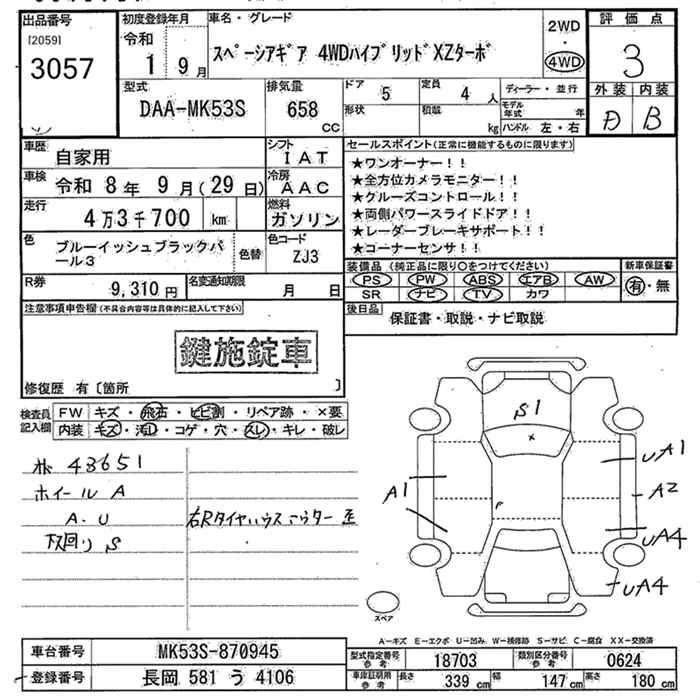 出品番号 初度登録年月 車名・グレード 2WD 評価点
[2059] 令和 ・
3057 1 9月 スペーシアギア 4WDハイブリッドXZターボ 4WD 3
型式 排気量 ドア 5 定員 4人 ディーラー・並行 外装 内装
DAA-MK53S 658 cc 形状 積載 kg モデル年式 年 D B
ハンドル 左・右
車歴 自家用 シフト IAT セールスポイント(正常に機能するものに限ります)
車検 令和 8年 9月(29日) 冷房 AAC ★ワンオーナー!!
★全方位カメラモニター!!
走行 4万3千700 km 燃料 ガソリン ★クルーズコントロール!!
★両側パワースライドドア!!
色 ブルーイッシュブラックパール3 色替 色コード ZJ3 ★レーダーブレーキサポート!!
★コーナーセンサ!!
R券 9,310円 名変通知期限 月 日 装備品(純正品に限り○をつけてください) 新車保証書
PS PW ABS エアB AW 有・無
SR ナビ TV カワ
注意事項申告欄(不具合内容等は具体的に記入して下さい) 後日品 保証書・取説・ナビ取説
鍵施錠車
修復歴 有〔箇所 〕
検査員記入欄 FW キズ・飛石・ヒビ割・リペア跡・×要
内装 キズ・汚レ・コゲ・穴・スレ・キレ・破レ
43651
ホイールA
A.U 右Rタイヤハウス
下回りS
S1
A1
UA1
A2
UA4
UA4
スペア
A-キズ E-エクボ U-凹み W-補修跡 S-サビ C-腐食 XX-交換済
車台番号 MK53S-870945 型式指定番号 参考 18703 類別区分番号 参考 0624
登録番号 長岡 581 う 4106 車庫証明用 参考 長さ 339cm 幅 147cm 高さ 180cm